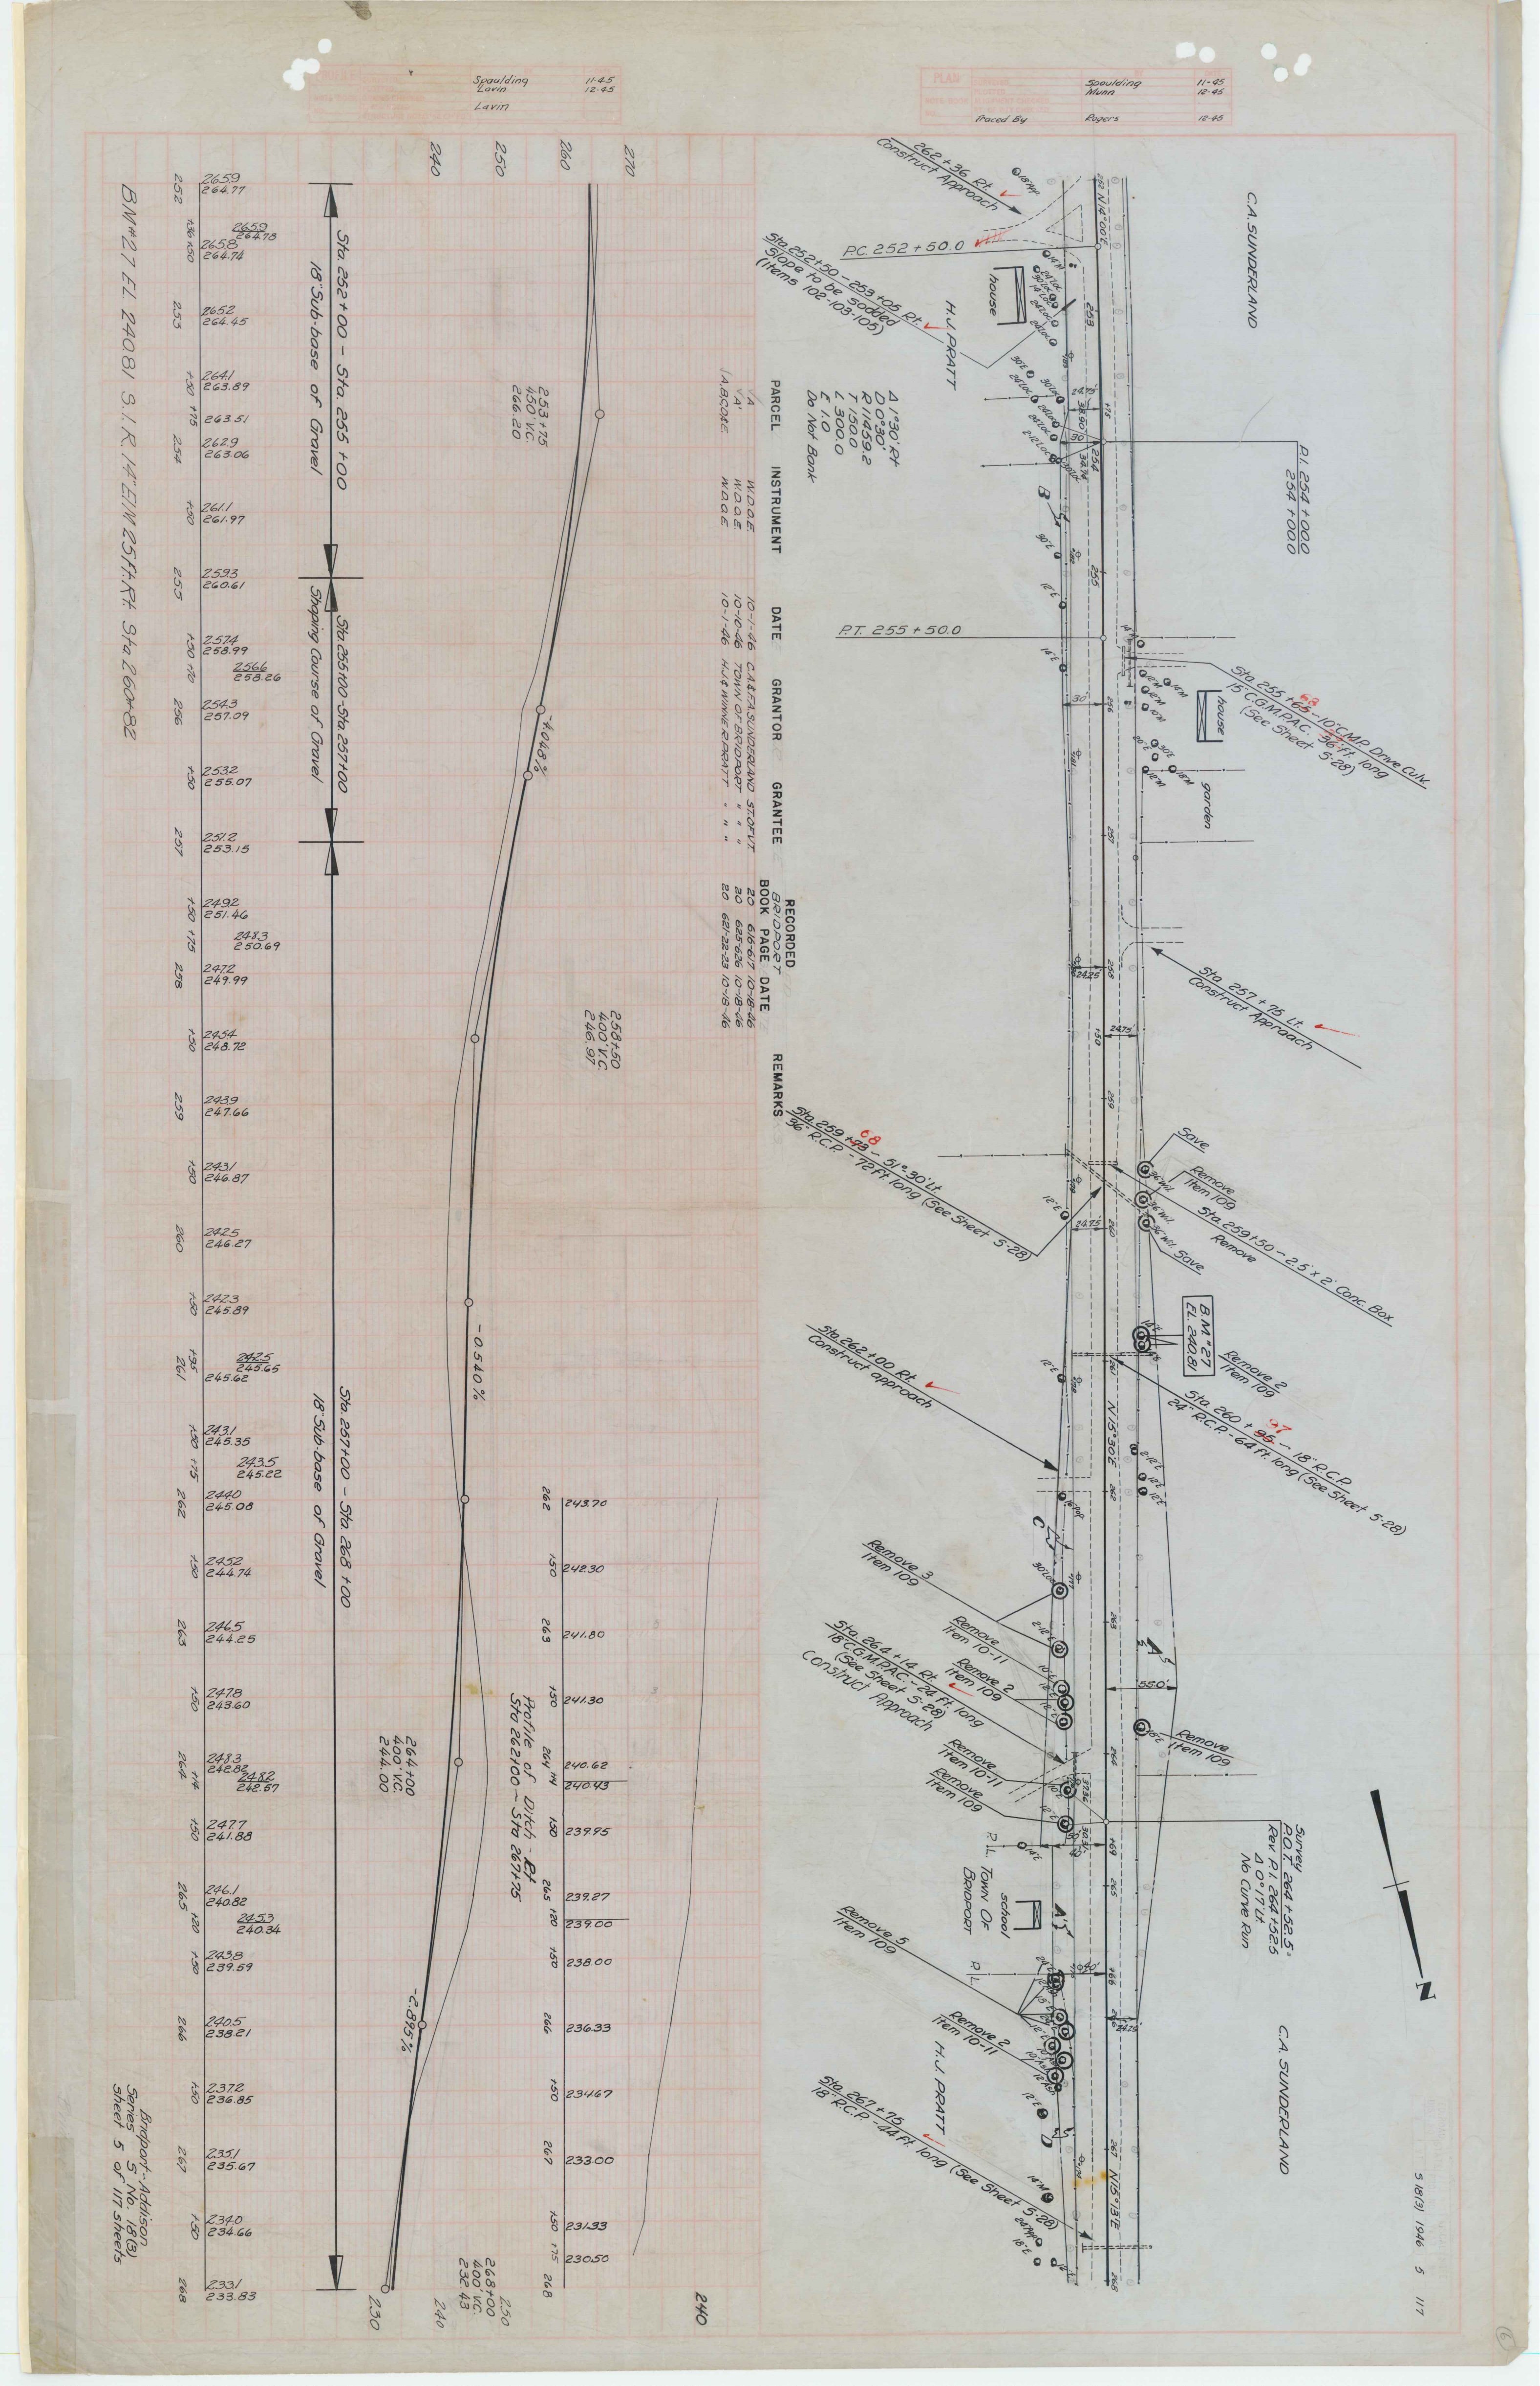 Spaulding 11-45
Lavin 12-45
Lavin
PLAN
Spaulding 11-45
Munn 12-45
Traced By Rogers 12-45
S 18(3) 1946 5 117
C.A. SUNDERLAND
262+36 Rt.
Construct Approach
P.C. 252+50.0
Sta. 252+50 - 253+05 Rt.
Slope to be sodded
(Items 102-103-105)
house
H.J. PRATT
N14°00'E
P.I. 254+00.0
254+00.0
Δ 1°30' Rt
D 0°30'
R 11459.2
T 150.0
L 300.0
E 1.0
Do Not Bank
P.T. 255+50.0
Sta. 255+65 - 10" C.M.P. Drive Culv.
68
15" C.G.M.P.A.C. 36 ft. long
(See Sheet S-28)
house
garden
Sta. 257+75 Lt.
Construct Approach
Sta. 259+73 - 51°-30' Lt
68
36" R.C.P. - 72 ft. long (See Sheet S-28)
Save
Remove
Item 109
Save
Sta. 259+50 - 2.5' x 2' Conc. Box
Remove
B.M. #27
EL. 240.81
Remove 2
Item 109
Sta. 260+95 - 18" R.C.P.
97
24" R.C.P. - 64 ft. long (See Sheet S-28)
N15°30'E
Sta. 262+00 Rt.
Construct approach
Remove 3
Item 109
Remove
Item 10-11
Remove 2
Item 109
Sta. 264+14 Rt.
18" C.G.M.P.A.C. - 24 ft. long
(See Sheet S-28)
Construct Approach
55.0'
Remove
Item 109
Remove
Item 10-11
Remove
Item 109
Survey
P.O.T. 264+52.5
Rev. P.I. 264+52.5
Δ 0°17' Lt.
No Curve Run
P.L.
TOWN OF
BRIDPORT
school
P.L.
N
Remove 5
Item 109
Remove 2
Item 10-11
H.J. PRATT
C.A. SUNDERLAND
Sta. 267+75
18" R.C.P. - 44 ft. long (See Sheet S-28)
N15°13'E
PARCEL INSTRUMENT DATE GRANTOR GRANTEE RECORDED BRIDPORT BOOK PAGE DATE REMARKS
A W.D.O.E. 10-1-46 C.A. & F.A. SUNDERLAND ST. OF VT. 20 616-617 10-18-46
A' W.D.O.E. 10-10-46 TOWN OF BRIDPORT " " " 20 625-626 10-18-46
A,B,C,D&E W.D.O.E. 10-1-46 H.J. & WINNE R PRATT " " " 20 621-22-23 10-18-46
240 250 260 270
253+75
450' V.C.
266.20
-4.048%
258+50
400' V.C.
246.97
-0.540%
264+00
400' V.C.
244.00
-2.895%
268+00
400' V.C.
232.43
230 240 250
240
Profile of Ditch - Rt
Sta 262+00 - Sta 267+75
262 243.70
+50 242.30
263 241.80
+50 241.30
264 240.62
+14 240.43
+50 239.95
265 239.27
+20 239.00
+50 238.00
266 236.33
+50 234.67
267 233.00
+50 231.33
+75 230.50
268
Sta. 252+00 - Sta. 255+00
18" Sub-base of Gravel
Sta. 255+00 - Sta. 257+00
Shaping Course of Gravel
Sta. 257+00 - Sta. 268+00
18" Sub-base of Gravel
252 265.9 264.77
+36 265.9 264.78
+50 265.8 264.74
253 265.2 264.45
+50 264.1 263.89
+75 263.51
254 262.9 263.06
+50 261.1 261.97
255 259.3 260.61
+50 257.4 258.99
+70 256.6 258.26
256 254.3 257.09
+50 253.2 255.07
257 251.2 253.15
+50 249.2 251.46
+75 248.3 250.69
258 247.2 249.99
+50 245.4 248.72
259 243.9 247.66
+50 243.1 246.87
260 242.5 246.27
+50 242.3 245.89
+95 242.5 245.65
261 245.62
+50 243.1 245.35
+75 243.5 245.22
262 244.0 245.08
+50 245.2 244.74
263 246.5 244.25
+50 247.8 243.60
264 248.3 242.82
+14 248.2 242.57
+50 247.7 241.88
265 246.1 240.82
+20 245.3 240.34
+50 243.8 239.59
266 240.5 238.21
+50 237.2 236.85
267 235.1 235.67
+50 234.0 234.66
268 233.1 233.83
BM#27 EL 240.81 S.I.R. 14" ELM 25 ft. Rt. Sta 260+82
Bridport-Addison
Series S No. 18(3)
Sheet 5 of 117 sheets